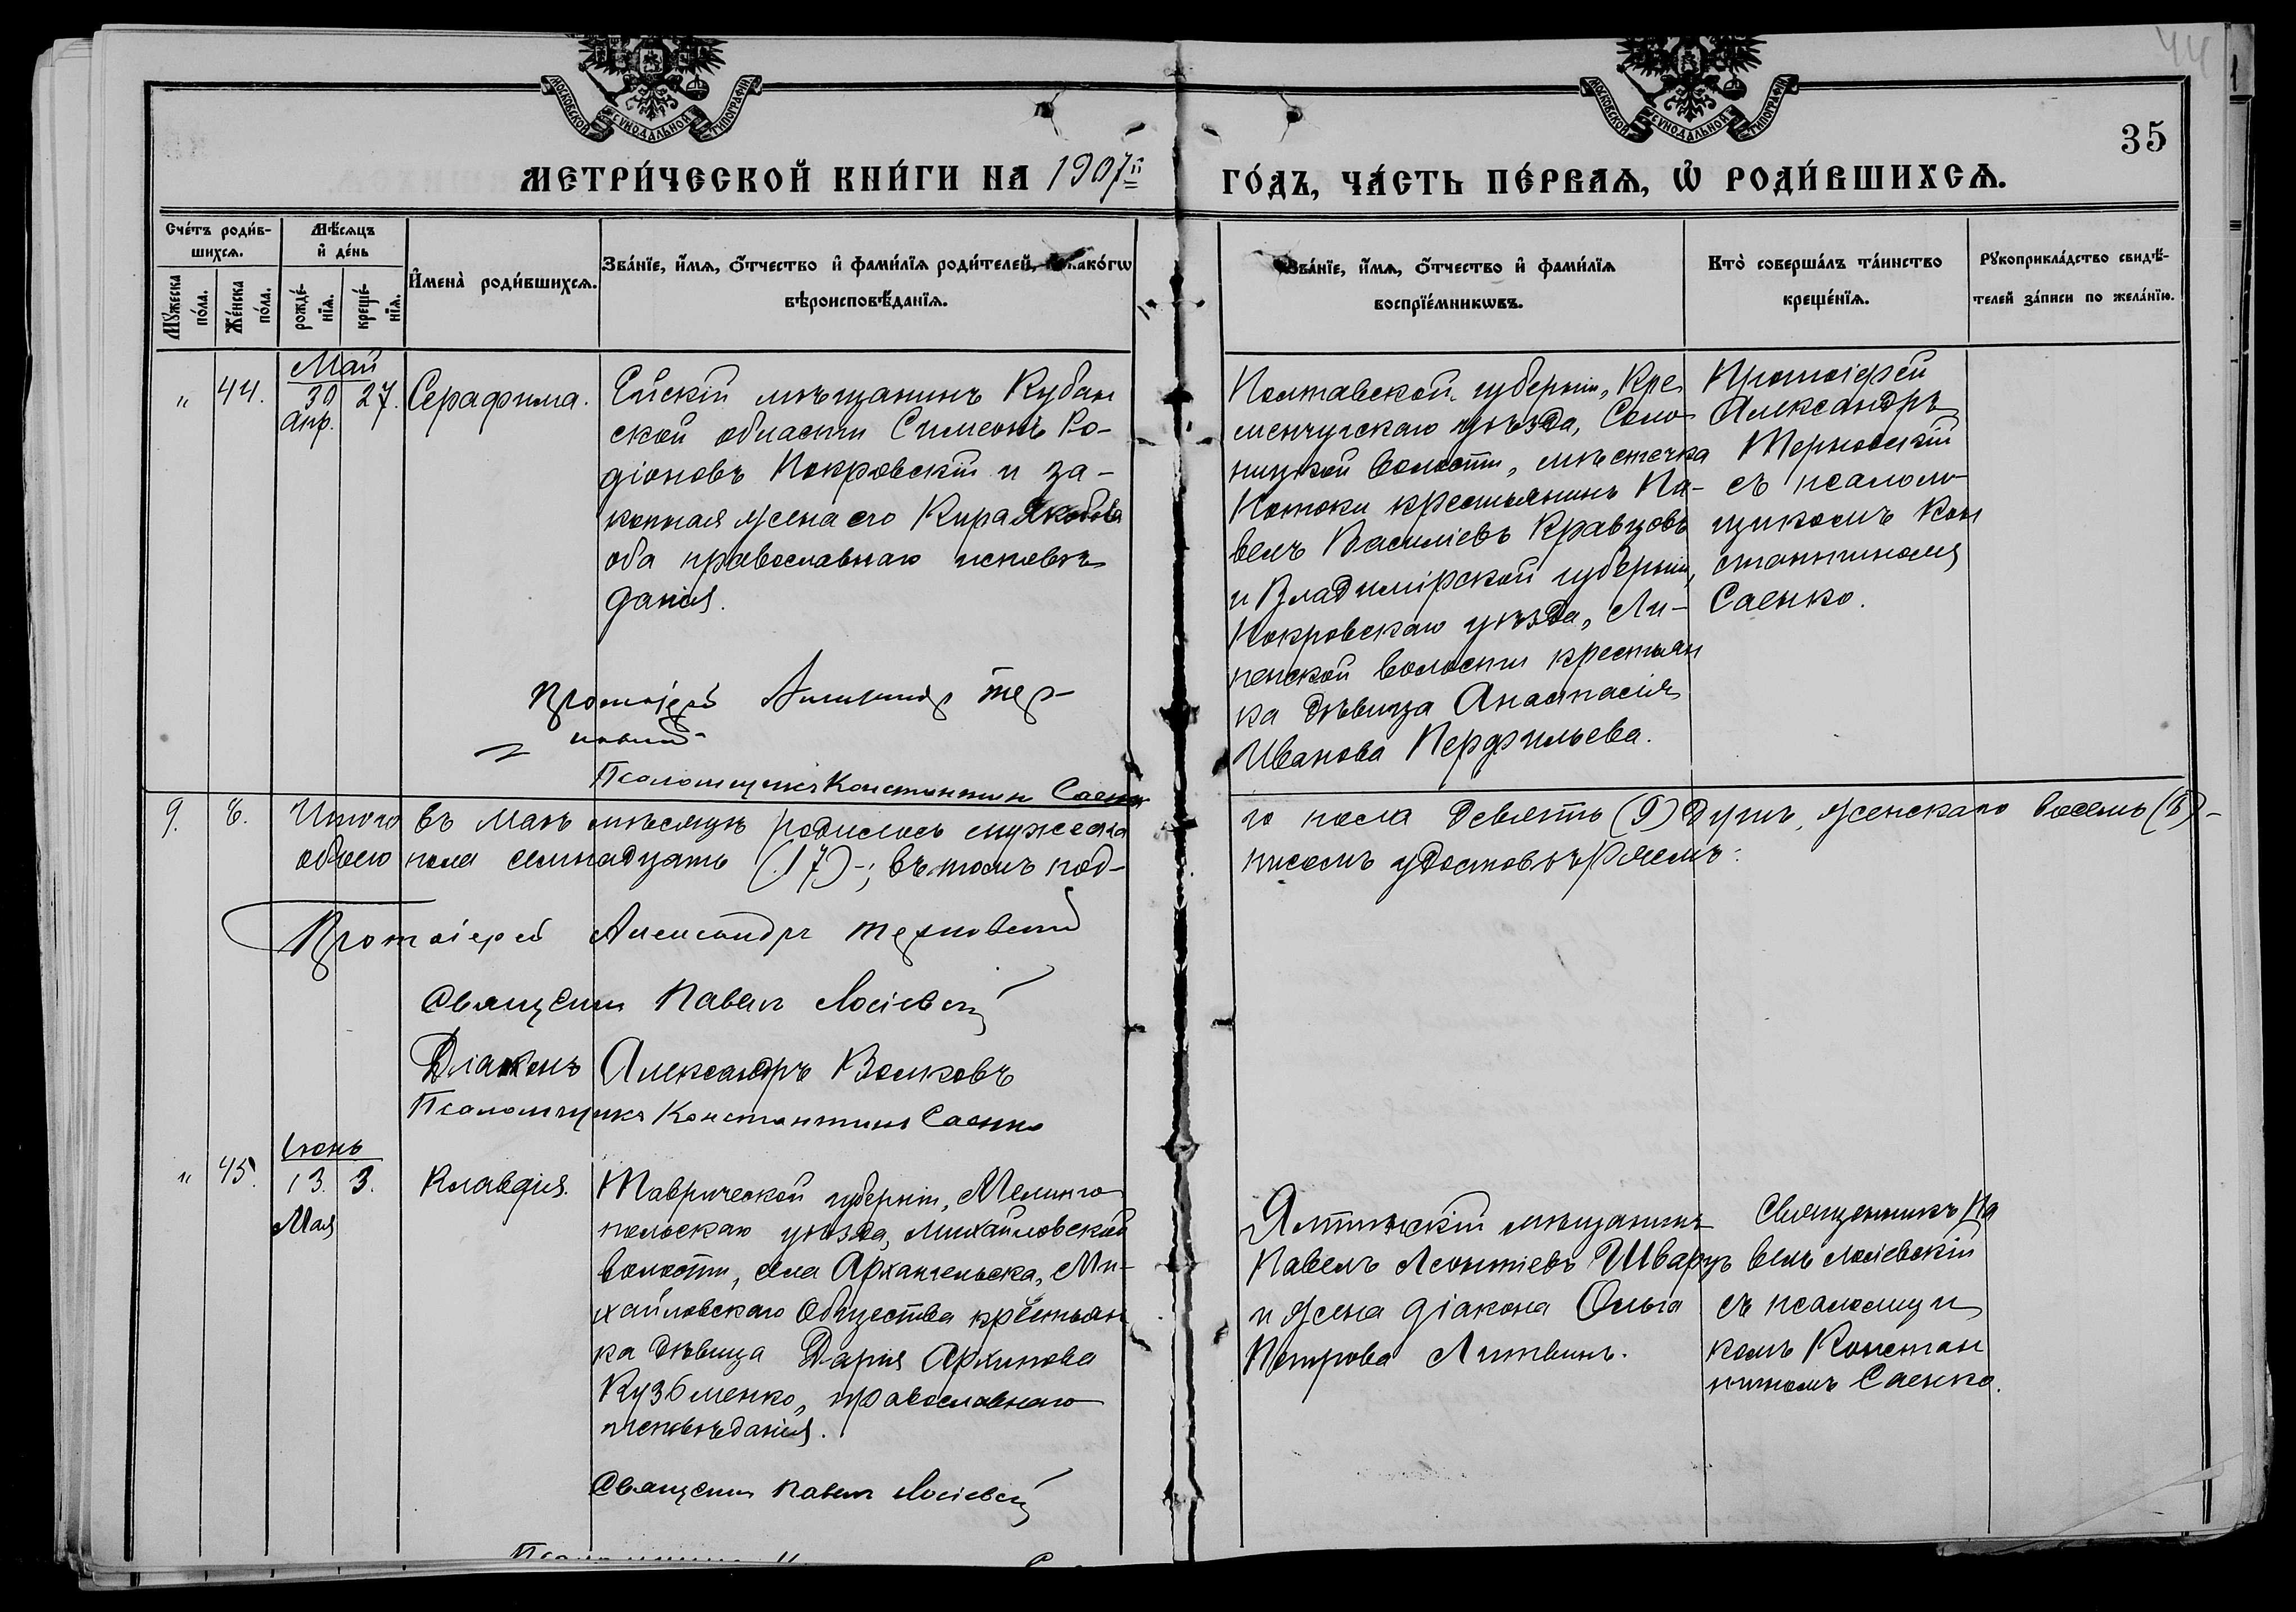 МОСКОВСКОЙ СѴНОДАЛЬНОЙ ТИПОГРАФІИ.
МОСКОВСКОЙ СѴНОДАЛЬНОЙ ТИПОГРАФІИ.
44
35
МЕТРИ́ЧЕСКОЙ КНИ́ГИ НА 1907й
ГО́ДЪ, ЧА́СТЬ ПЕ́РВАѦ, Ѡ҆ РОДИ́ВШИХСѦ.
Сче́тъ роди́в-
шихсѧ.
Мѣ́сѧцъ
и҆ де́нь
Мꙋ́жеска
по́ла.
Же́нска
по́ла.
рожде́-
нїѧ.
креще́-
нїѧ.
И҆мена̀ роди́вшихсѧ.
Зва́нїе, и҆́мѧ, ѻ҆́тчество и҆ фами́лїѧ роди́телей, и҆ како́гѡ
вѣроисповѣ́данїѧ.
Зва́нїе, и҆́мѧ, ѻ҆́тчество и҆ фами́лїѧ
воспрїе́мникѡвъ.
Кто̀ соверша́лъ та́инство
креще́нїѧ.
Рꙋкоприкла́дство свидѣ́-
телей за́писи по жела́нїю.
Май
" 44. 30 27. Серафима.
Апр.
Ейскій мѣщанинъ Кубан
ской области Симеонъ Ро-
діоновъ Покровскій и за-
конная жена его Кира Якобова
оба православнаго исповѣ
данія.
Протоіерей Александръ Тер-
новскій
Псаломщикъ Константинъ Саенко
Полтавской губерніи, Кре
менчугскаго уѣзда,
ницкой волости, мѣстечка
Потоки крестьянинъ Па-
велъ Василіевъ Кравцовъ
и Владимірской губерніи,
Покровскаго уѣзда, Ли-
пенской волости крестьян
ка дѣвица Анастасія
Иванова Перфильева.
Протоіерей
Александръ
Терновскій
съ псаломъ
щикомъ Кон
стантиномъ
Саенко.
9. 8. Итого въ маѣ мѣсяцѣ родилось мужеска
го пола девять (9) душъ, женскаго восемь (8)-
обоего пола семнадцать (17)-; въ томъ под-
писомъ удостовѣряемъ:
Протоіерей Александръ Терновскій
Священник Павел Лосіевскій
Діаконъ Александръ Волковъ
Псаломщикъ Константинъ Саенко
Іюнь
" 45. 13. 3. Клавдія.
Мая
Таврической губерніи, Мелито
польскаго уѣзда, Михайловской
волости, села Архангельска, Ми-
хайловскаго Общества крестьян
ка дѣвица Дарія Архипова
Кузьменко, православнаго
исповѣданія.
Священник Павел Лосіевскій
Ялтинскій мѣщанинъ
Павелъ Леонтіевъ Шварцъ
и жена діакона Ольга
Петрова Литвинъ.
Священникъ Па
велъ Лосіевскій
съ псаломщи
комъ Констан
тиномъ Саенко.